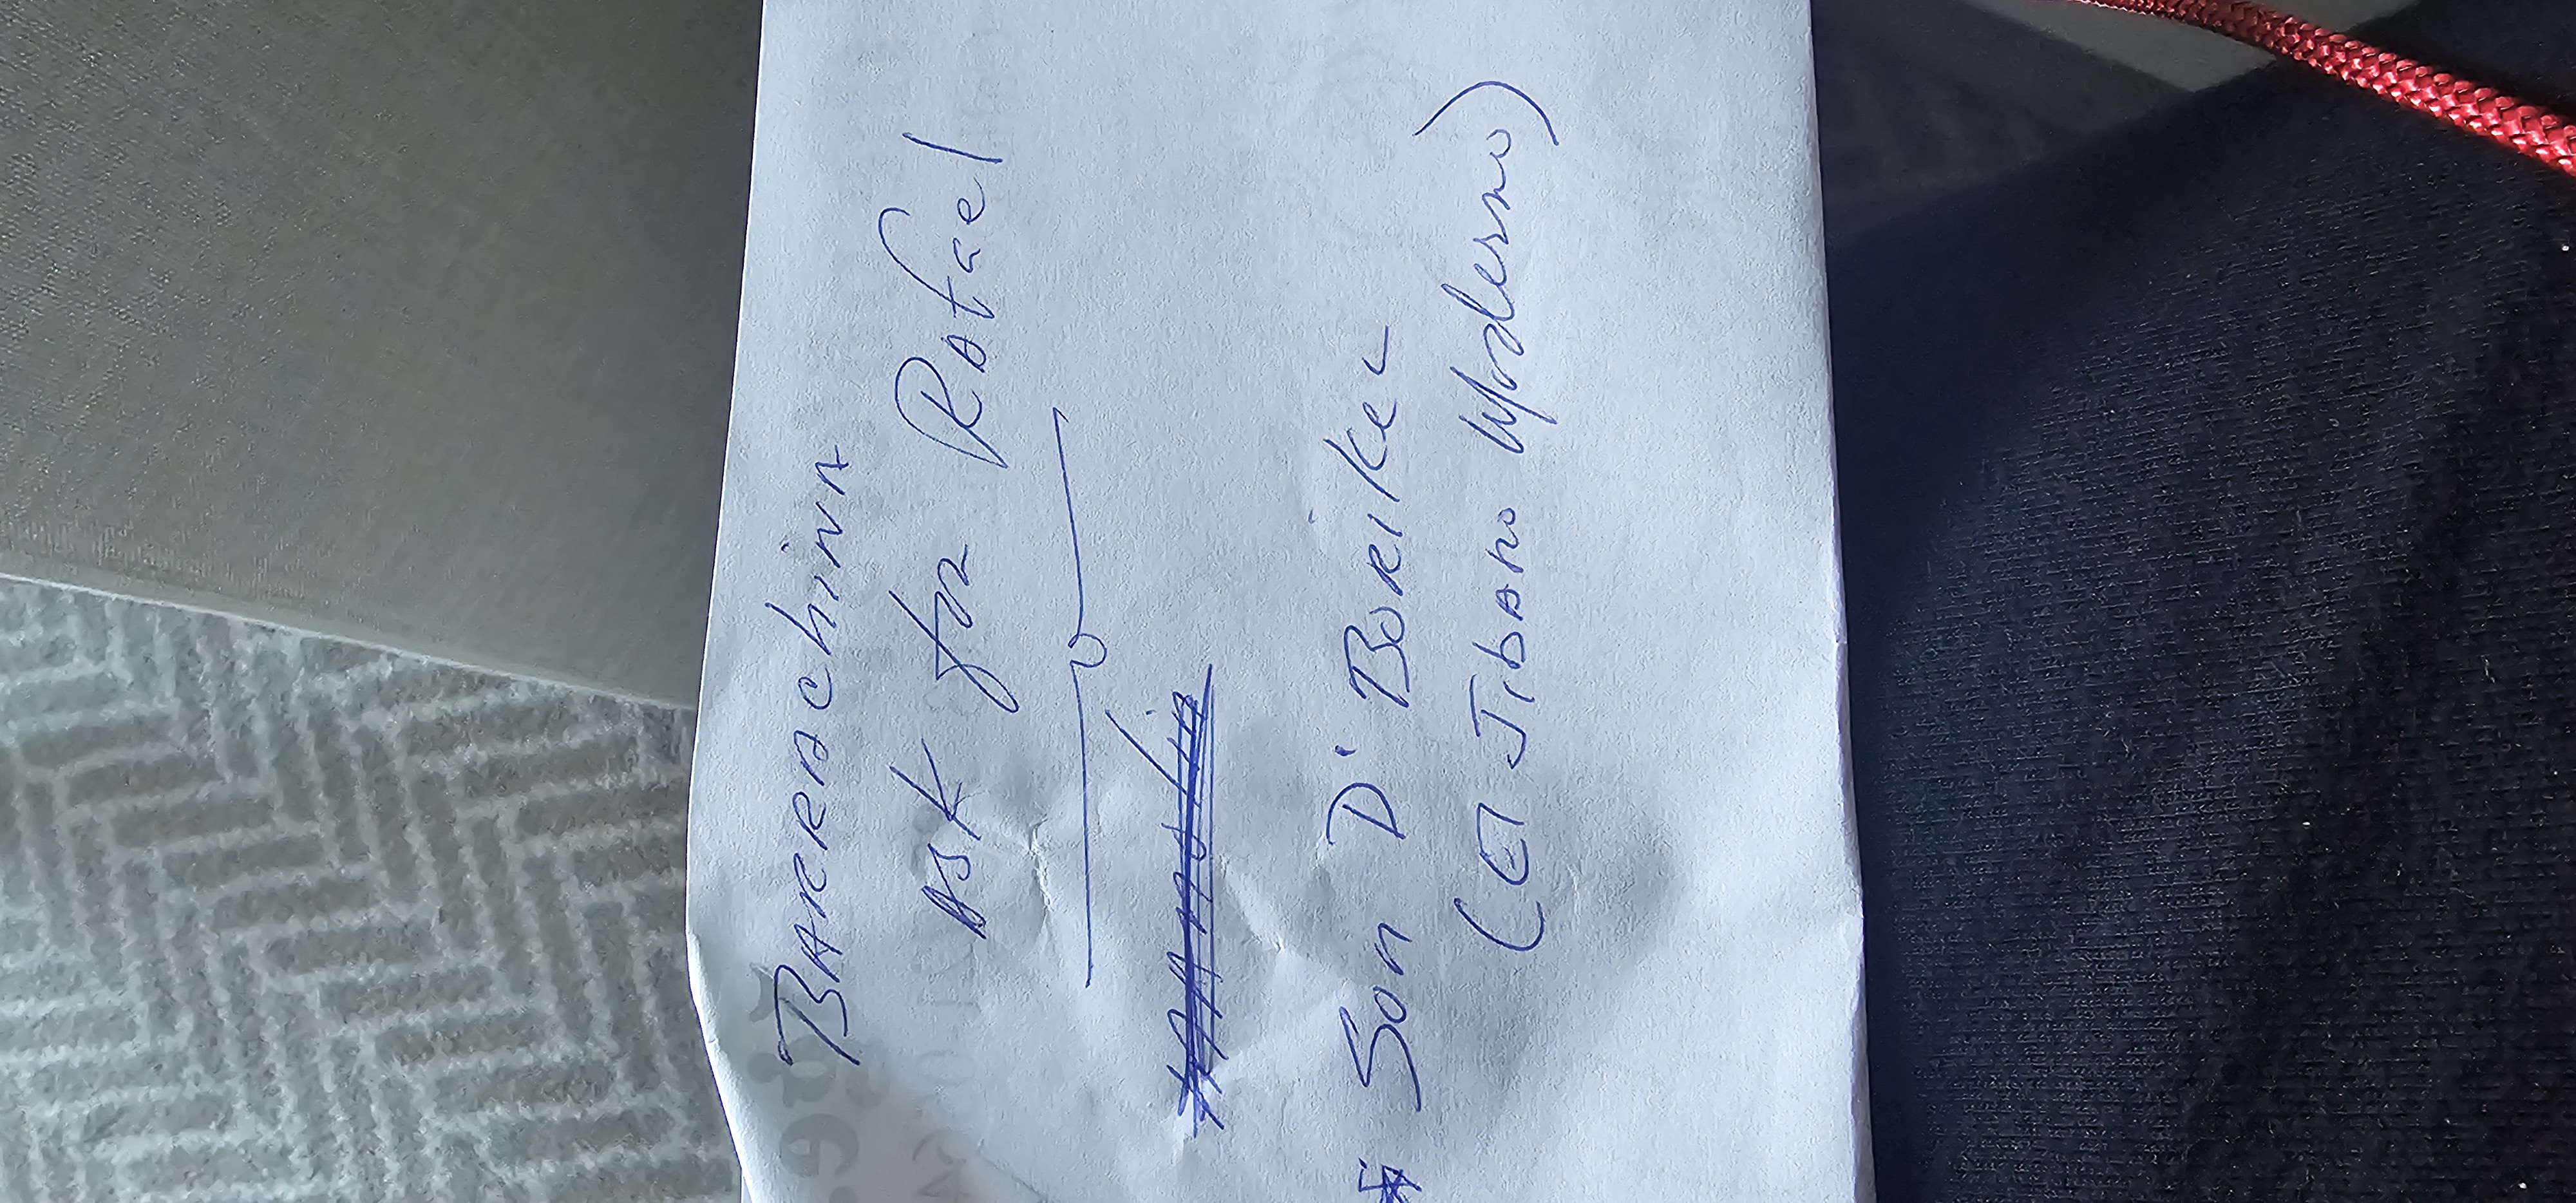 Barrachina
Ask for Rafael
* Son D' Borikel
(El Jibaro Moderno)